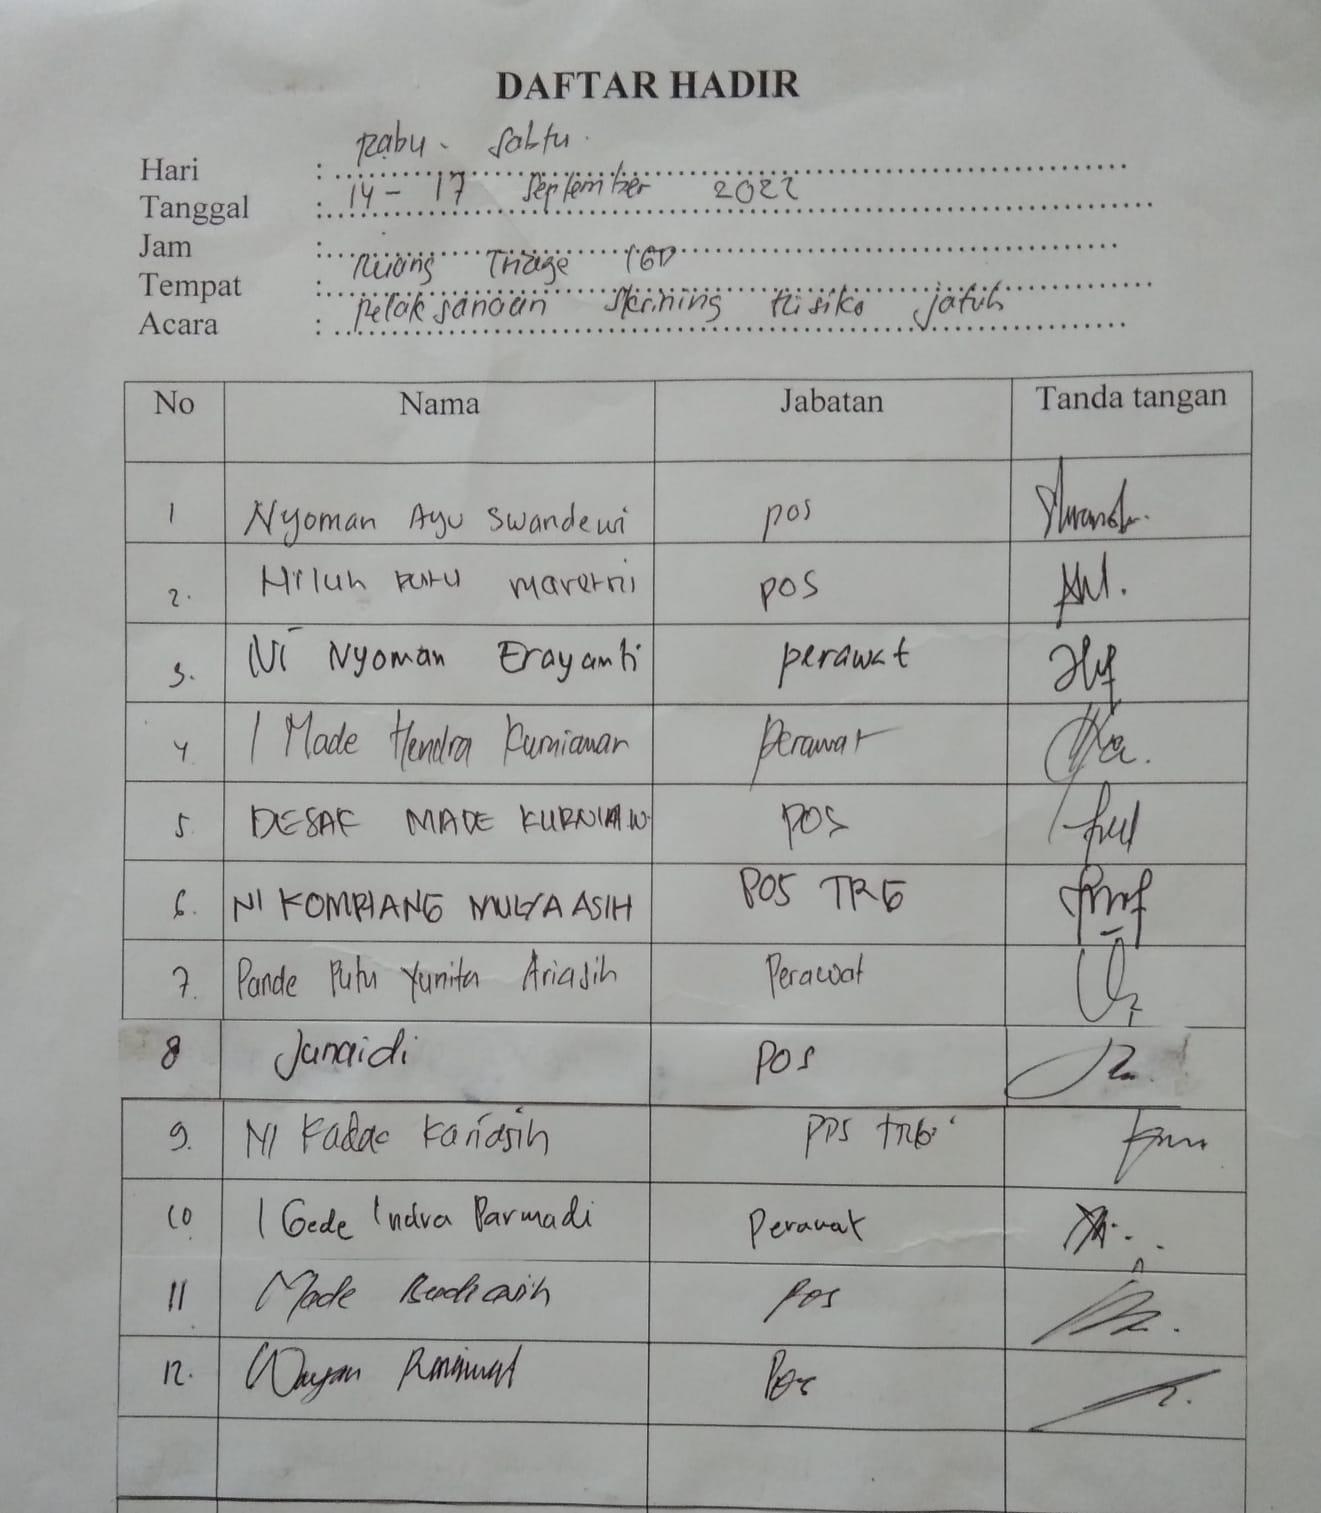 DAFTAR HADIR
Hari : Rabu - Sabtu.
Tanggal : 14 - 17 September 2022
Jam :
Tempat : Ruang Triage IGD
Acara : pelaksanaan skrining Risiko jatuh
No Nama Jabatan Tanda tangan
1 Nyoman Ayu Swandewi pos
2. Niluh putu pos
3. Ni Nyoman Erayanti perawat
4 I Made Hendra Kurniawan perawat
5 DESAK MADE KURNIAW pos
6. NI KOMPIANG MULYA ASIH POS TRG
7. Pande Putu Yunita Ariasih Perawat
8 Junaidi pos
9. NI Kadac Kariasih
10 I Gede Indra Parmadi Perawat
11 Made Budiasih pos
12. Wayan Pos